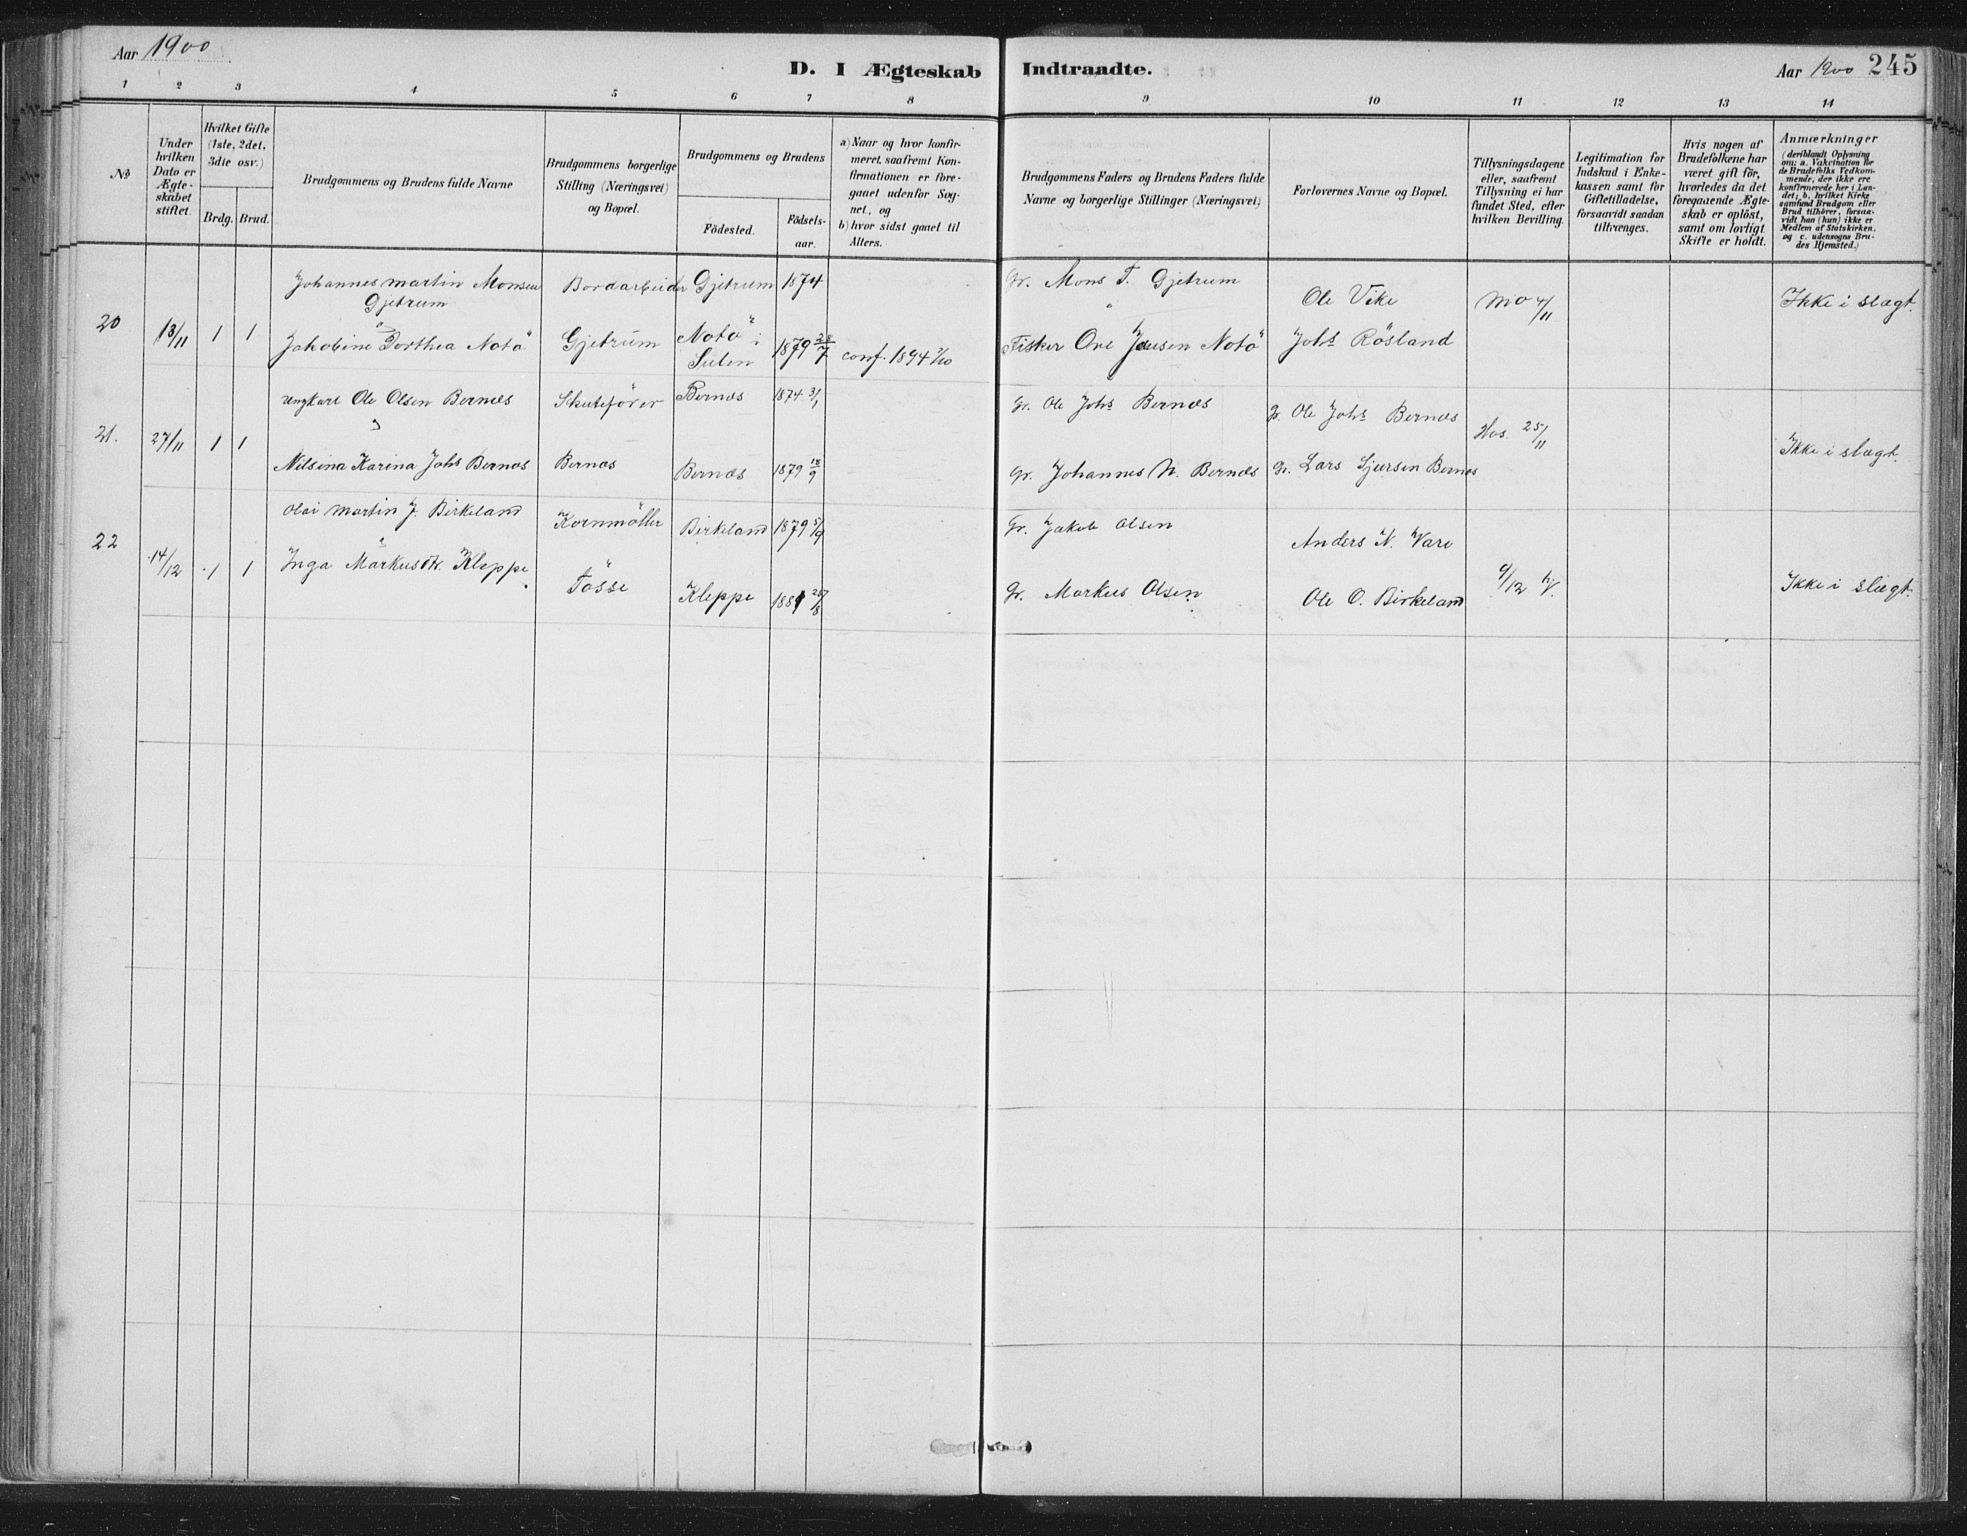 Aar 1900
D. I Ægteskab Indtraadte.
Aar 1900 245
1 2 3 4 5 6 7 8 9 10 11 12 13 14
No
Under hvilken Dato er Ægteskabet stiftet.
Hvilket Gifte (1ste, 2det, 3die osv.)
Brdg. Brud.
Brudgommens og Brudens fulde Navne
Brudgommens borgerlige Stilling (Næringsvei) og Bopæl.
Brudgommens og Brudens
Födested.
Födsels-aar.
a) Naar og hvor konfirmeret, saafremt Konfirmationen er foregaaet udenfor Sognet, og
b) hvor sidst gaaet til Alters.
Brudgommens Faders og Brudens Faders fulde Navne og borgerlige Stillinger (Næringsvei)
Forlovernes Navne og Bopæl.
Tillysningsdagene eller, saafremt Tillysning ei har fundet Sted, efter hvilken Bevilling.
Legitimation for Indskud i Enkekassen samt for Giftetilladelse, forsaavidt saadan tiltrænges.
Hvis nogen af Brudefolkene har været gift för, hvorledes da det foregaaende Ægteskab er oplöst, samt om lovligt Skifte er holdt.
Anmærkninger
(deriblandt Oplysning om: a. Vakcination for de Brudefolks Vedkommende, der ikke ere konfirmerede her i Landet; b. hvilket Kirkesamfund Brudgom eller Brud tilhörer, forsaavidt han (hun) ikke er Medlem af Statskirken, og c. udensogns Brudes Hjemsted.)
Johannes Martin Monsen Bordarbeider Gjetrum 1874 Gr. Mons T. Gjetrum
Gjetrum Ole Vike Mo 4/11 Ikke i slægt.
20 13/11 1 1 Jakobine Dorthea Notö Gjetrum Notö i Sulen 1879 28/7 conf. 1894 7/10 Fisker Ove Jansen Notö Johs Rösland
ungkarl Ole Olsen Bernæs Skuteförer Bernæs 1874 3/1 Gr. Ole Johs Bernæs Gr. Ole Johs Bernæs
21. 27/11 1 1 Hos. 25/11 Ikke i slægt.
Nilsina Karina Johs Bernæs Bernæs Bernæs 1879 18/9 Gr. Johannes N. Bernæs Gr. Lars Sjursen Bernæs
Olai Martin J. Birkeland Kornmöller Birkeland 1879 5/9 Gr. Jakob Olsen Anders N. Vare
22 14/12 1 1 Inga Markusdtr. Kleppe Tösse Kleppe 1881 Gr. Markus Olsen Ole O. Birkeland 9/12 Ikke i slægt.